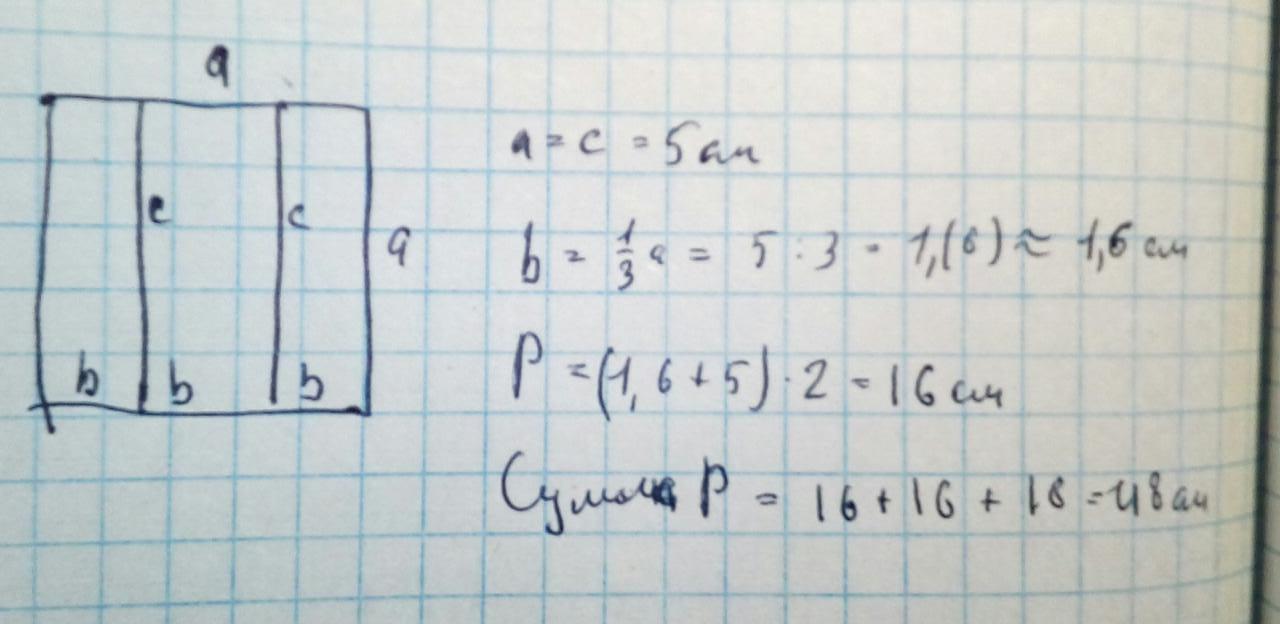 a
c c a
b b b
a = c = 5 см
b = 1/3 a = 5 : 3 = 1,(6) ≈ 1,6 см
P = (1,6 + 5) · 2 = 16 см
Сумма P = 16 + 16 + 16 = 48 см